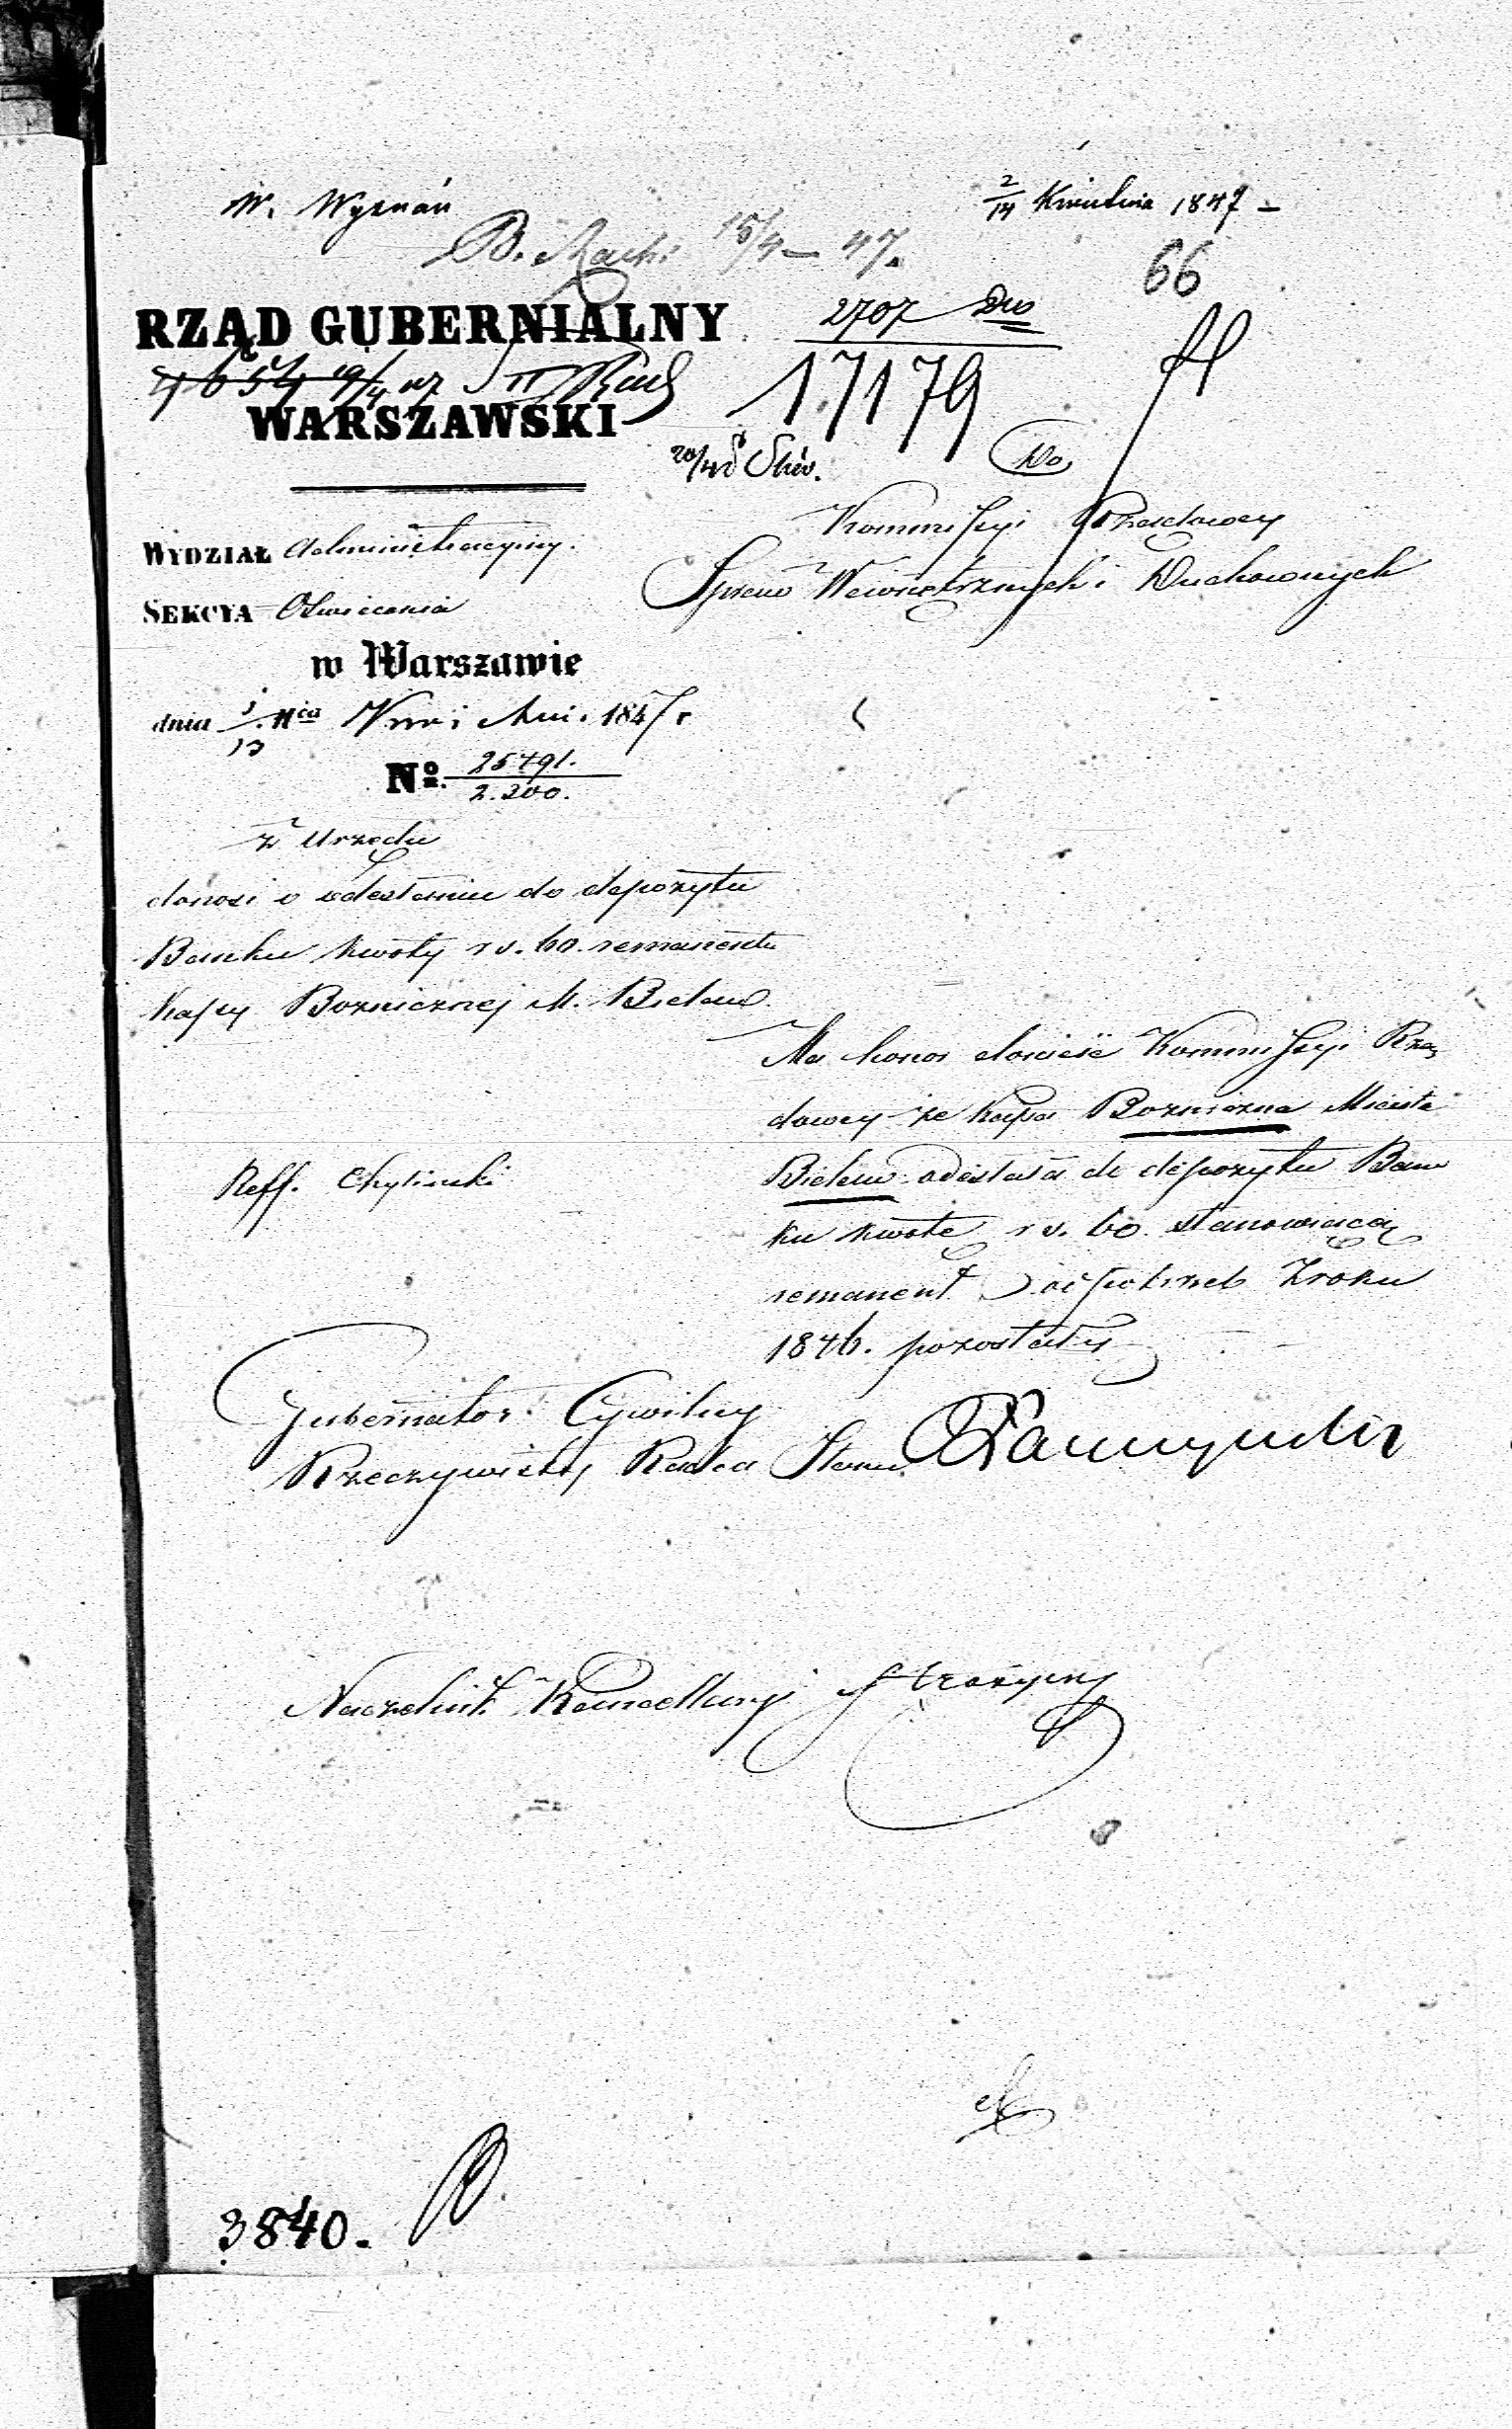 W. Wyznań
2/14 Kwietnia 1847 –
15/4 – 47.
66
RZĄD GUBERNIALNY
2707 Dwo
17179
WARSZAWSKI
Do
Kommissyi Rządowey
Spraw Wewnętrznych i Duchownych
WYDZIAŁ Administracyiny.
SEKCYA Oświecenia
w Warszawie
dnia 1/13 1847 r
No. 25491.
2.200.
z Urzędu
donosi o odesłaniu do depozytu
Banku kwoty rs. 60. remanentu
Kassy Bożniczney M. Bielaw
Ma honor donieść Kommissyi Rzą
dowey że Kassa Bożniczna Miasta
Bielaw odesłała do depozytu Ban
ku kwotę rs. 60. stanowiącą
remanent od potrzeb Zroku
1846. pozostały
Reff. Chyliński
Gubernator Cywilny
Rzeczywisty Radca Stanu
Naczelnik Kancellaryi
3840.